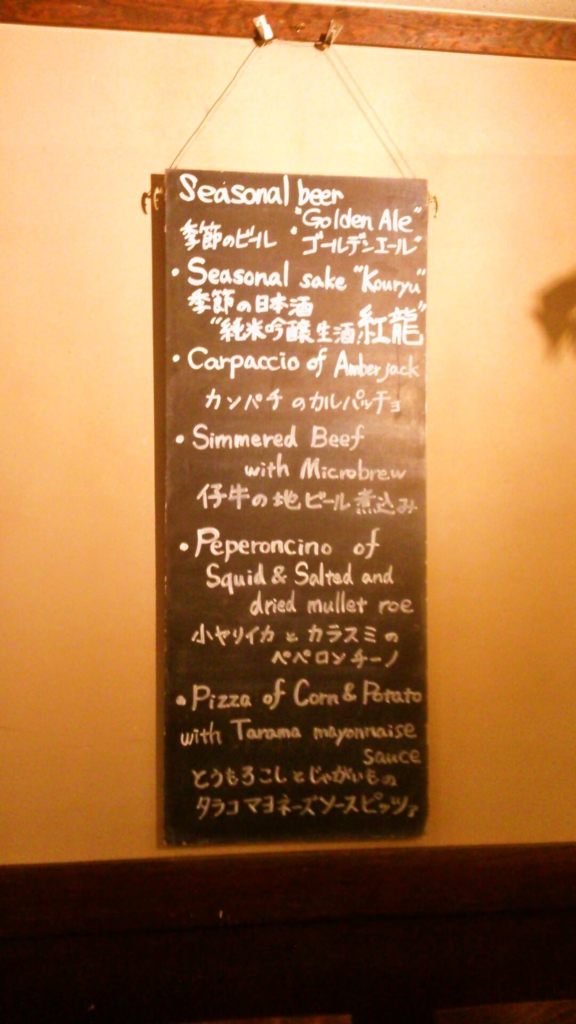 Seasonal beer
季節のビール
・"Golden Ale"
ゴールデンエール
・Seasonal sake "Kouryu"
季節の日本酒
"純米吟醸生酒紅龍"
・Carpaccio of Amberjack
カンパチのカルパッチョ
・Simmered Beef
with Microbrew
仔牛の地ビール煮込み
・Peperoncino of
Squid & Salted and
dried mullet roe
小ヤリイカとカラスミの
ペペロンチーノ
・Pizza of Corn & Potato
with Tarama mayonnaise
sauce
とうもろこしとじゃがいもの
タラコマヨネーズソースピッツァ